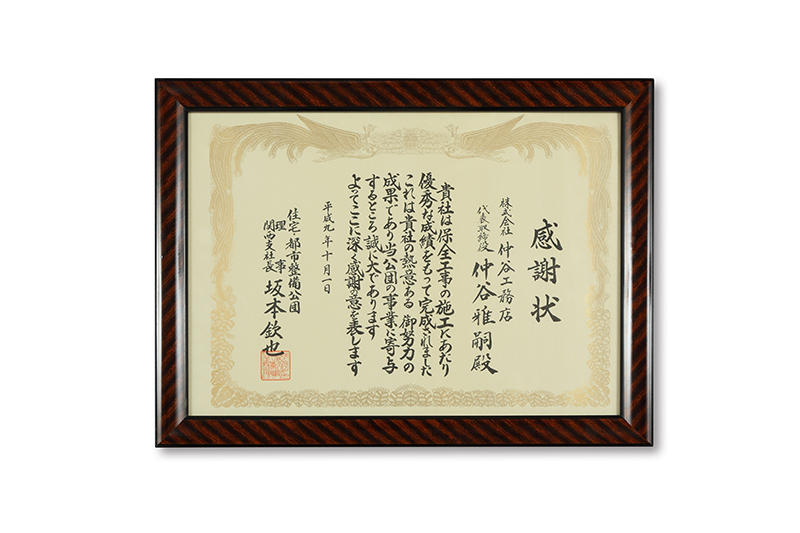 感謝状
株式会社 仲谷工務店
代表取締役 仲谷雅嗣殿
貴社は保全工事の施工にあたり
優秀な成績をもって完成されました
これは貴社の熱意ある御努力の
成果であり当公団の事業に寄与
するところ誠に大であります
よってここに深く感謝の意を表します
平成九年十月一日
住宅・都市整備公団
理事
関西支社長 坂本欽也